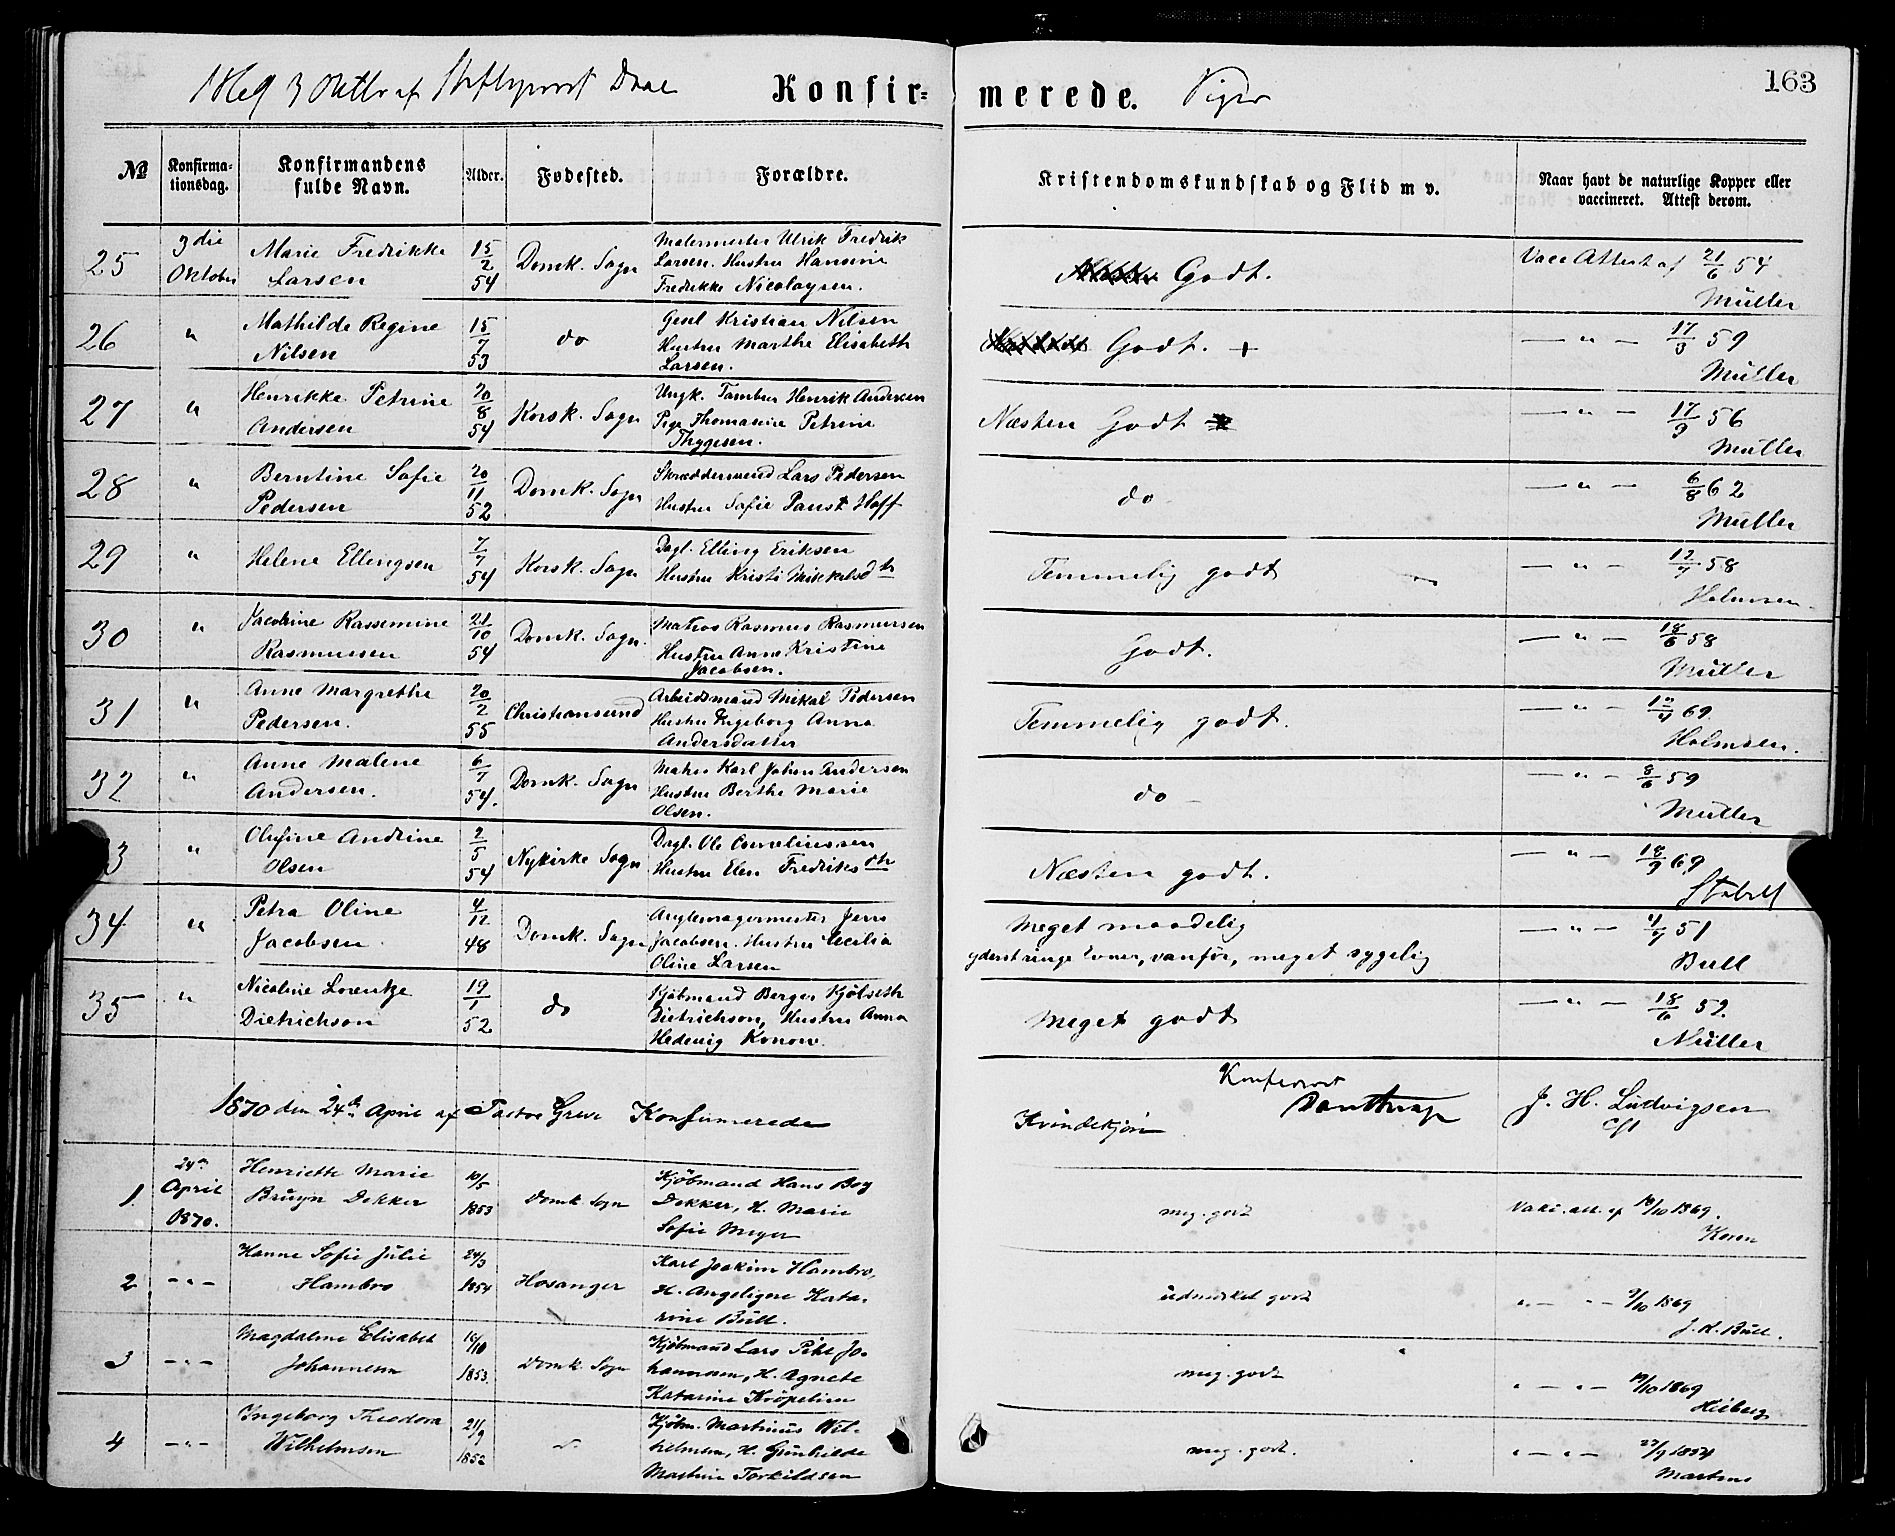 1869 3 Oktbr af Stiftsprovst Daae Konfir= merede. Piger 163
№ Konfirma= tionsdag. Konfirmandens fulde Navn. Alder. Fødested. Forældre. Kristendomskundskab og Flid m v. Naar havt de naturlige Kopper eller vaccineret. Attest derom.
25 3die Marie Fredrikke 15/2 54 Domk. Sogn Malermester Ulrik Fredrik
Oktober Larsen Larsen. Hustru Hansine
Fredrikke Nicolaysen.
Godt. Vacc Attest af 21/6 54
Müller
26 " Mathilde Regine 15/7 53 do Gesel Kristian Nilsen
Nilsen Hustru Marthe Elisabeth
Larsen.
Godt. + — " — 17/3 59
Müller
27 " Henrikke Petrine 20/8 54 Korsk. Sogn Ungk. Tambur Henrik Andersen
Andersen Pige Thomasine Petrine
Thygesen.
Næsten Godt — " — 17/9 56
Müller
28 " Berntine Sofie 20/11 52 Domk. Sogn Skræddersvend Lars Pedersen
Pedersen Hustru Sofie Hoff
do — " — 6/8 62
Müller
29 " Helene Ellingsen 7/7 54 Korsk. Sogn Dagl. Elling Eriksen
Hustru Kristi Mikkelsdtr
Temmelig godt — " — 12/7 58
Holmsen
30 " Jacobine Rassemine 21/10 54 Domk. Sogn. Matros Rasmus Rasmussen
Rasmussen Hustru Anne Kristine
Jacobsen.
Godt. — " — 18/6 58
Müller
31 " Anne Margrethe 20/2 55 Christiansund Arbeidsmand Mikal Pedersen
Pedersen. Hustru Ingeborg Anna
Andersdatter
Temmelig godt. — " — 69
Holmsen.
32 " Anne Malene 6/7 54. Domk. Sogn Karl Johan Andersen
Andersen. Hustru Berthe Marie
Olsen.
do — " — 8/6 59
Müller
3 " Olufine Andrine 2/5 54 Nykirke Sogn Dagl. Ole Corneliussen
Olsen Hustru Elen Fredriksdtr
Næsten godt. — " — 18/9 69
34 " Petra Oline 4/12 48 Domk. Sogn Jens
Jacobsen Jacobsen. Hustru Cecilia
Oline Larsen
Meget maadelig — " — 51
yderst ringe Evner, vanfør, meget sygelig Bull
35 " Nicoline Lorentze 19/1 52 do Kjøbmand Berger Kjølseth
Dietrichson Dietrichson, Hustru Anna
Hedevig Konow.
Meget godt — " — 18/6 52
Müller
1870 den 24de April af Pastor Greve Konfirmerede Kvindekjøn Konfereret J. H. Ludvigsen
cst
1. 24de Henriette Marie 10/5 1853 Domk. Sogn Kjøbmand Hans Boy
April Bruyn Dekker Dekker, H. Marie
1870. Sofie Meyer
meg. godt Vacc. att. af 19/10 1869.
Koren
2 —"— Hanne Sofie Julie 24/3 1854 Hosanger Karl Joakim Hambro,
Hambro H. Angelique Kata-
rine Bull.
udmerket godt "— "— 9/10 1869
J. K. Bull.
3 —"— Magdalene Elisabet 16/10 1853. Domk. Sogn Kjøbmand Lars Pihl Jo-
Johannesen hannesen, H. Agnete
Katarine Kröpelien
meg. godt "— "— 19/10 1869
Hiberg
4 —"— Ingeborg Theodora 21/9 1852 Kjøbm. Martinus Wil-
Wilhelmsen helmsen, H. Gunhilde
Martine Torkildsen
meg. godt. "— "— 27/9 1854
Martens